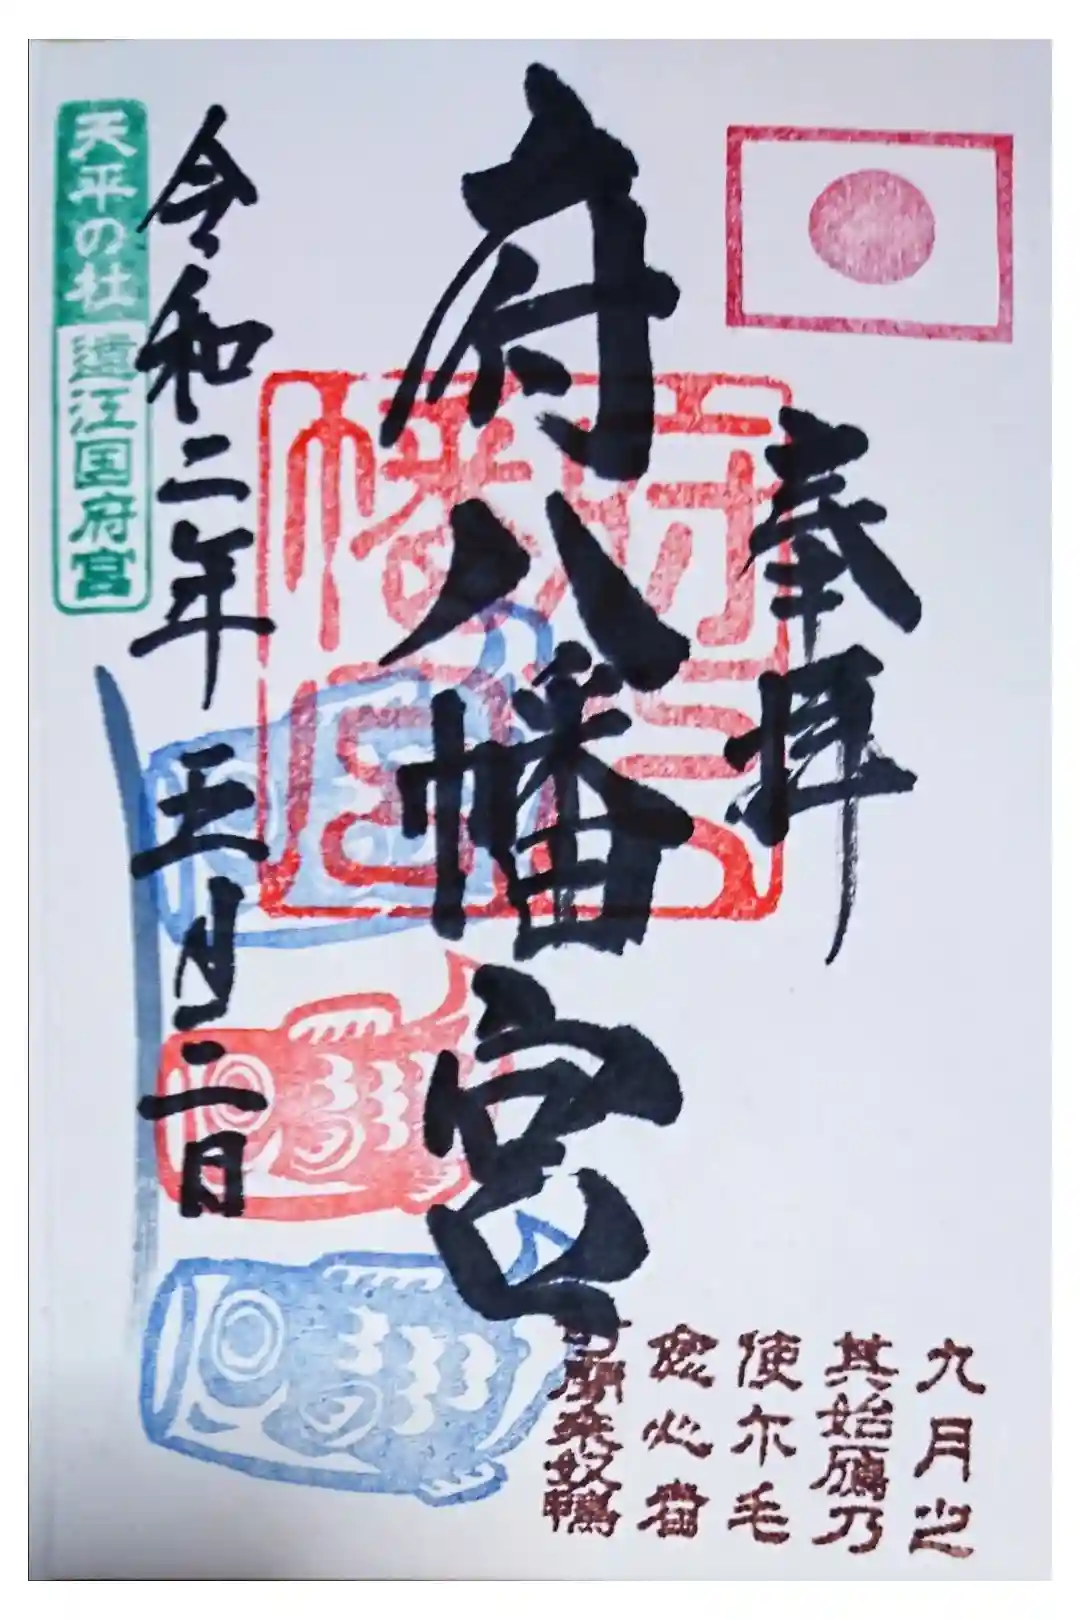 奉拝
府八幡宮
府八幡宮
令和二年五月二日
天平の杜 遠江国府宮
九月之
其始鴈乃
使尓毛
念心者
聞来奴鴨